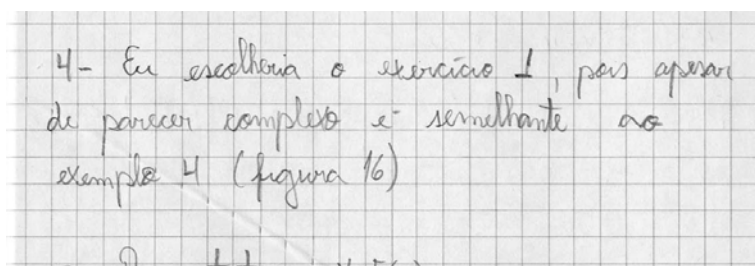 4- Eu escolheria o exercício 1, pois apesar
de parecer complexo é semelhante ao
exemplo 4 (figura 16)